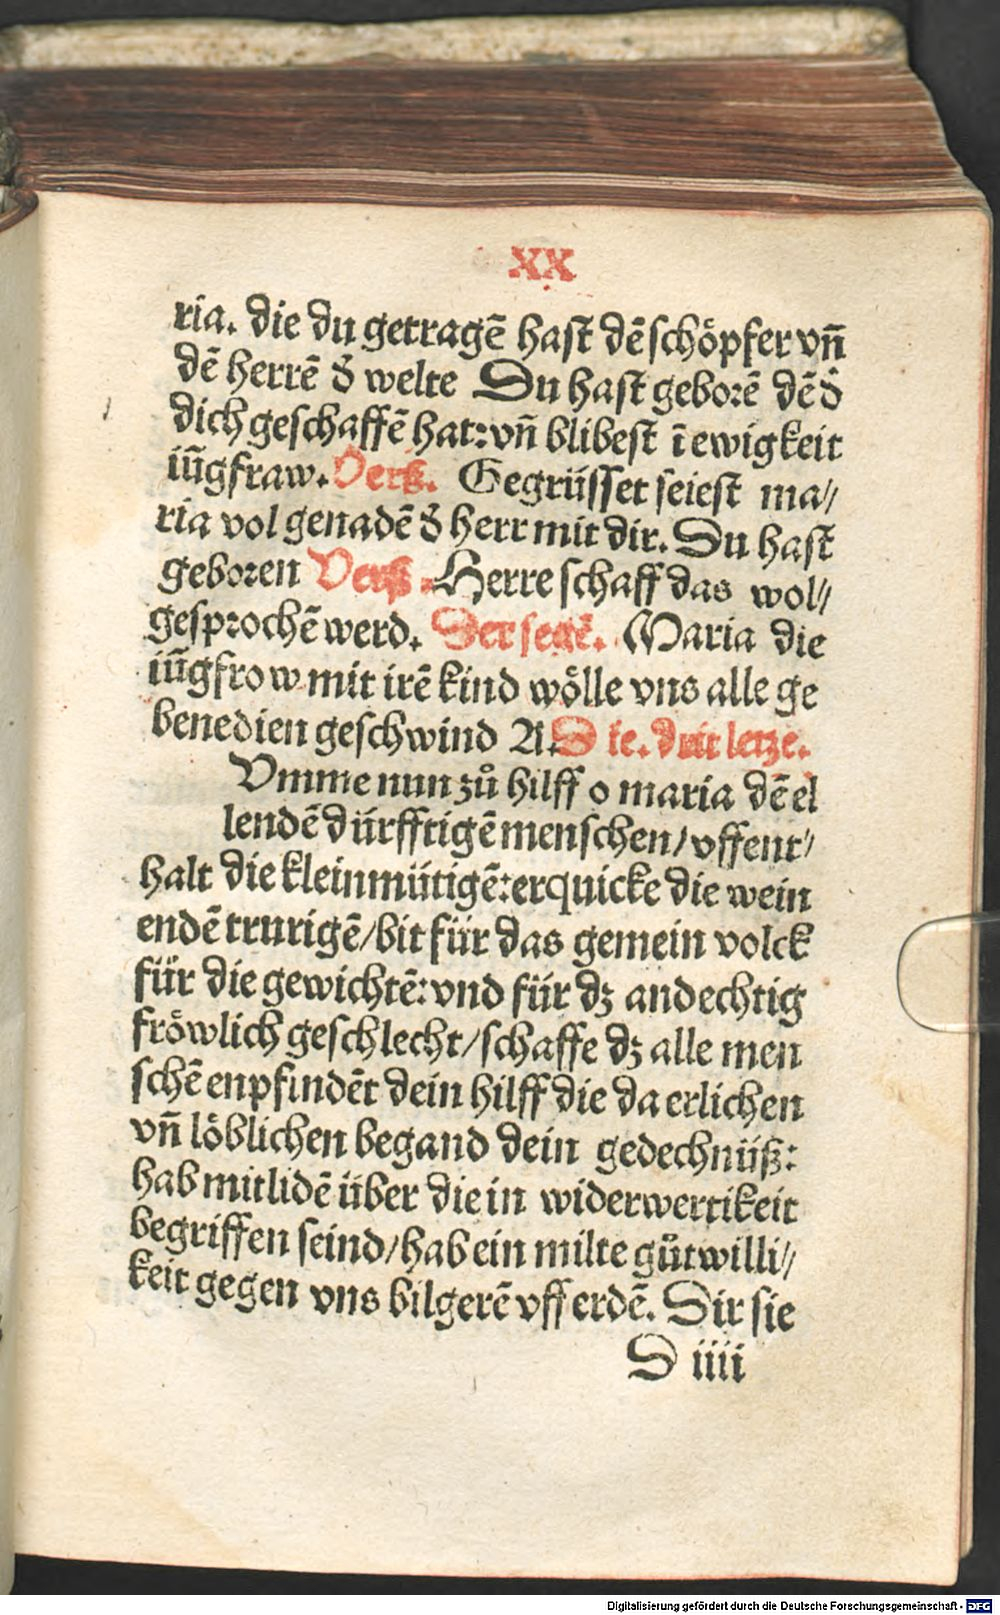 XX
ria. die du getragē hast dē schöpfer vn̄
dē herrē d̕ welte Du hast geborē dē d̕
dich geschaffē hat: vn̄ blibest ī ewigkeit
iūgfraw. Vers. Gegrüsset seiest ma//
ria vol genadē d̕ herr mit dir. Du hast
geboren Verß. Herre schaff das wol//
gesprochē werd. Der segē. Maria die
iūgfrow mit irē kind wölle vns alle ge
benedien geschwind A. Die. drit letze.
Vmme nun zů hilff o maria dē el
lendē dürfftigē menschen/ vffent/
halt die kleinmütigē: erquicke die wein
endē trurigē/ bit für das gemein volck
für die gewichtē: vnd für dz andechtig
fröwlich geschlecht/ schaffe dz alle men
schē enpfindēt dein hilff die da erlichen
vn̄ löblichen begand dein gedechnüß:
hab mitlidē über die in widerwertikeit
begriffen seind/ hab ein milte gůtwilli//
keit gegen vns bilgerē vff erdē. Dir sie
D iiii
Digitalisierung gefördert durch die Deutsche Forschungsgemeinschaft - DFG